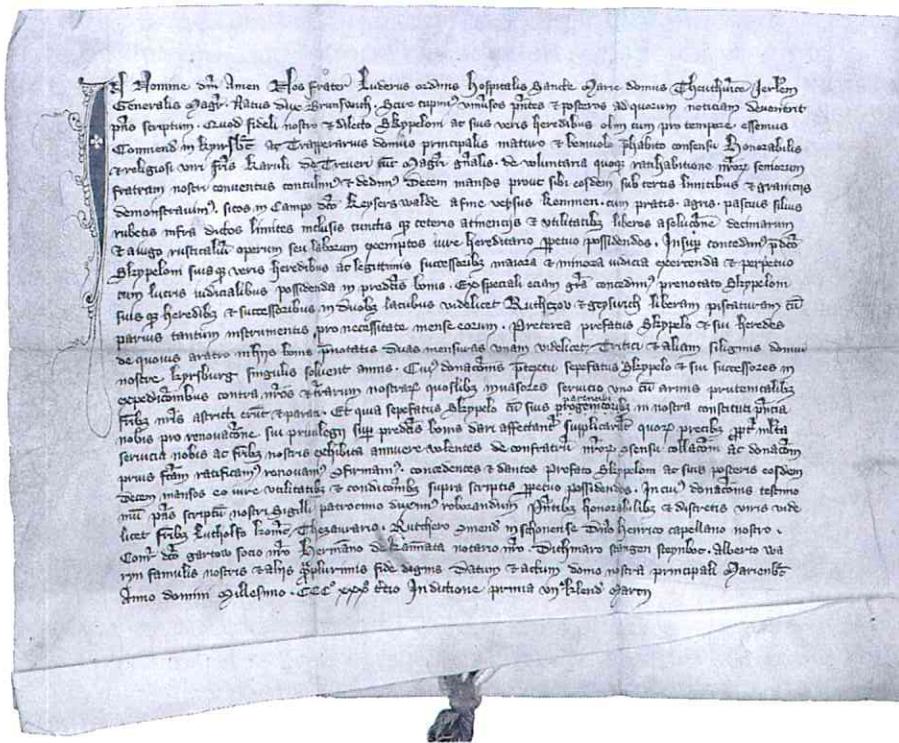 In Nomine dni Amen Nos frater Luderus ordinis Hospitalis Sancte Marie domus Theuthunice Jerlem
Generalis Magr Natus dux Brunswich. Scire cupimus universos presentes & posteros ad quorum noticiam devenerit
pns scriptum. Quod fideli nostro & dilecto Skypeloni ac suis veris heredibus olim cum pro tempore essemus
Commend in kyrsbc ac Trapperarius domus principalis maturo & benivolo phabito consensu Honorabilis
& religiosi viri fris Karuli de Treveri tunc Magri gnalis. de voluntaria quoque ratihabitione nrorum seniorum
fratrum nostri conventus contulimus & dedimus Decem mansos prout sibi eosdem sub certis limitibus & graniciis
demonstravimus. sitos in Campo dco Keysers walde a fine versus komnen. cum pratis. agris. pascuis silvis
rubetis infra dictos limites inclusis cunctis que ceteris atinenciis & utilitatibus liberos a solucone decimarum
& a iugo rusticalium operum seu laborum exemptos iure hereditario perpetuo possidendos. Insuper concedimus pdco
Skypeloni suisque veris heredibus ac legittimis successoribus maiora & minora iudicia exercenda & perpetuo
cum lucris iudicialibus possidenda in predictis bonis. Ex speciali eciam gra concedimus prenotato Skypeloni
suisque heredibus & successoribus in duobus lacubus videlicet Ruthczow & geyserich liberam piscaturam cum
parvis tantum instrumentis pro necessitate mense eorum. Preterea prefatus Skypelo & sui heredes
de quovis aratro in hiis bonis pnotatis duas mensuras unam videlicet Tritici & aliam siliginis domui
nostre kyrsburg singulis solvent annis. Cuius donaconis pretextu sepefatus Skypelo & sui successores in
expedicionibus contra nros & terrarum nostrarum quoslibet invasores servicio uno cum armis prutenicalibus
fribus nris astricti erunt & parati. Et quia sepefatus Skypelo cum suis progenitoribus in nostra constituti presencia
nobis pro renovacone sui privilegii super predictis bonis dari affectantius supplicarunt quorum precibus propter multa
servicia nobis ac fribus nostris exhibita annuere volentes de confratrum nrorum consensu collaconem ac donaconem
prius factam ratificamus renovamus confirmamus. concedentes & dantes prefato Skypeloni ac suis posteris eosdem
decem mansos eo iure utilitatibus & condiconibus supra scriptis perpetuo possidendos. In cuius donaconis testimo
nium pns scriptum nostri Sigilli patrocinio duximus roborandum Presentibus honorabilibus & discretis viris vide
licet fribus Lutholfo Thezaurario. Rutchero Comend in schonense Dno henrico capellano nostro.
dco gartow socio nro Hermanno de notario nro. Dithmaro stangen steynboc. Alberto wa
ryn famulis nostris & aliis quampluribus fide dignis Datum & actum domo nostra principali Marienbc
Anno domini Millesimo. CCCo xxxo tercio Indictione prima Kalend Marcii